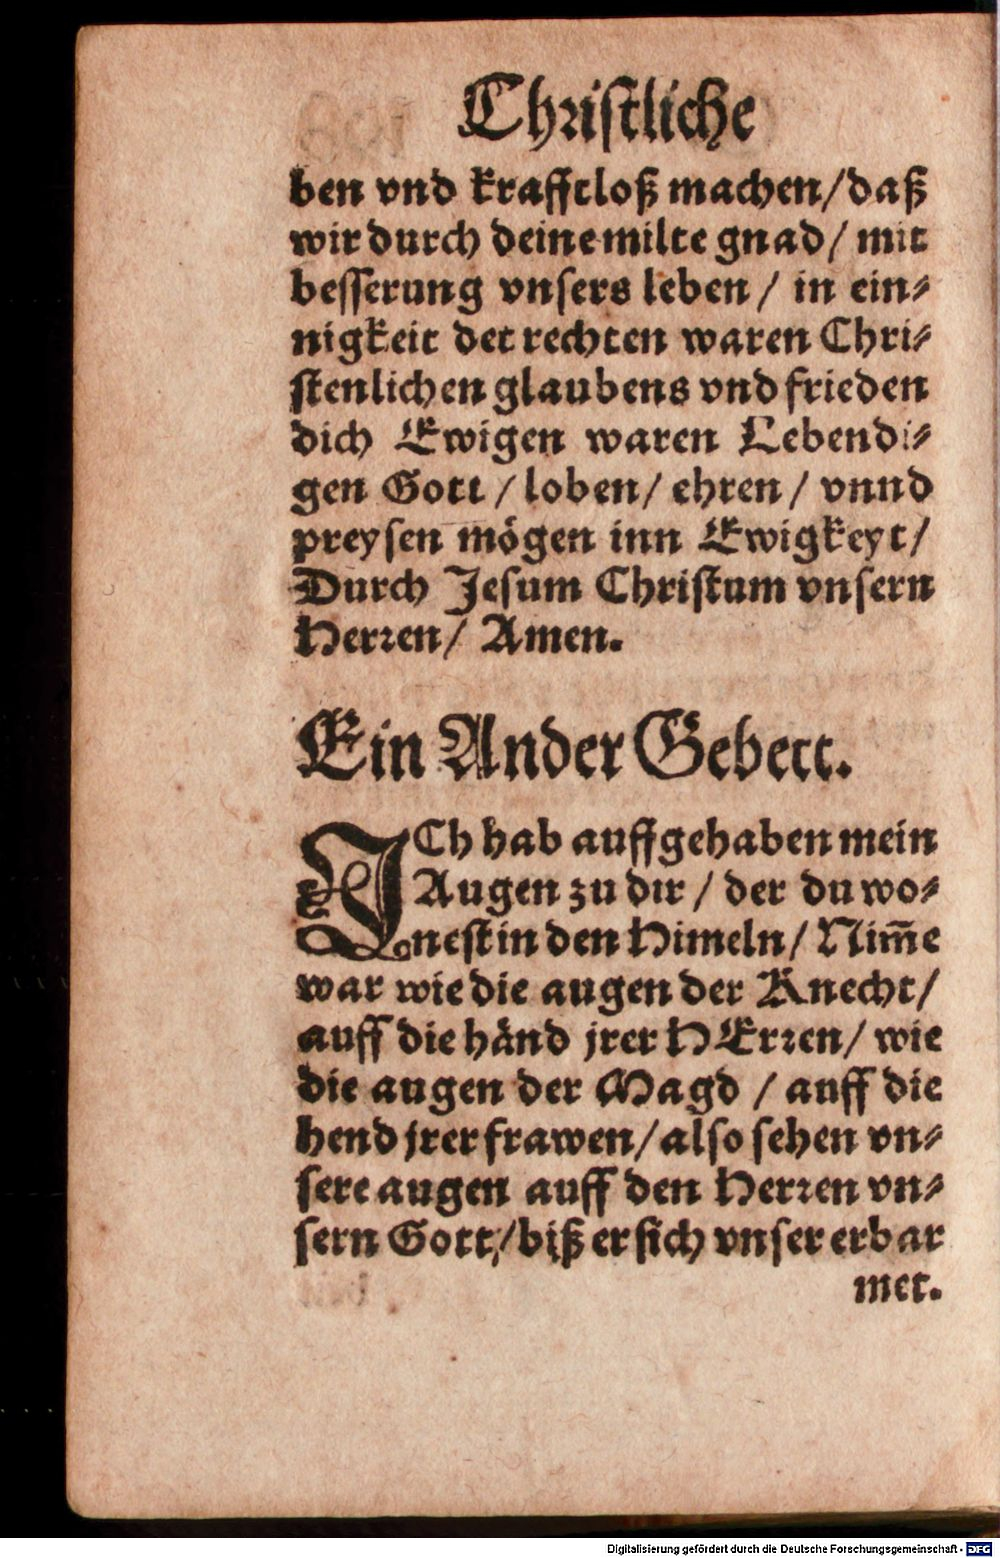 Christliche
ben vnd krafftloß machen/daß
wir durch deine milte gnad/ mit
besserung vnsers leben/ in ein⸗
nigkeit der rechten waren Chri⸗
stenlichen glaubens vnd frieden
dich Ewigen waren Lebendi⸗
gen Gott/loben/ ehren/ vnnd
preysen mögen inn Ewigkeyt/
Durch Jesum Christum vnsern
Herren/ Amen.
Ein Ander Gebett.
JCh hab auffgehaben mein
Augen zu dir/ der du wo⸗
nest in den Himeln/ Nim̄e
war wie die augen der Knecht/
auff die händ jrer HErren/ wie
die augen der Magd / auff die
hend jrer frawen/also sehen vn⸗
sere augen auff den Herren vn⸗
sern Gott/biß er sich vnser erbar
met.
Digitalisierung gefördert durch die Deutsche Forschungsgemeinschaft - DFG